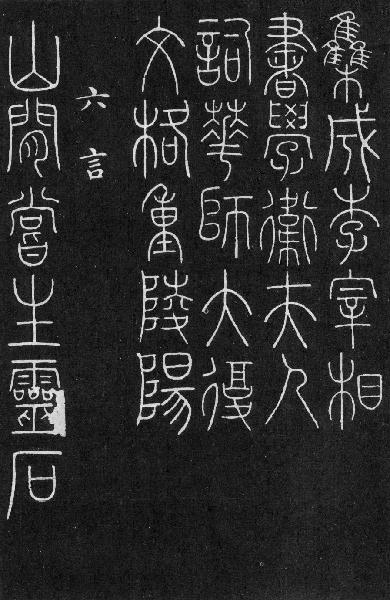 雧成李宰相
書學衛夫人
詞華師大復
文格重陵陽
六言
山閒嘗主靈石